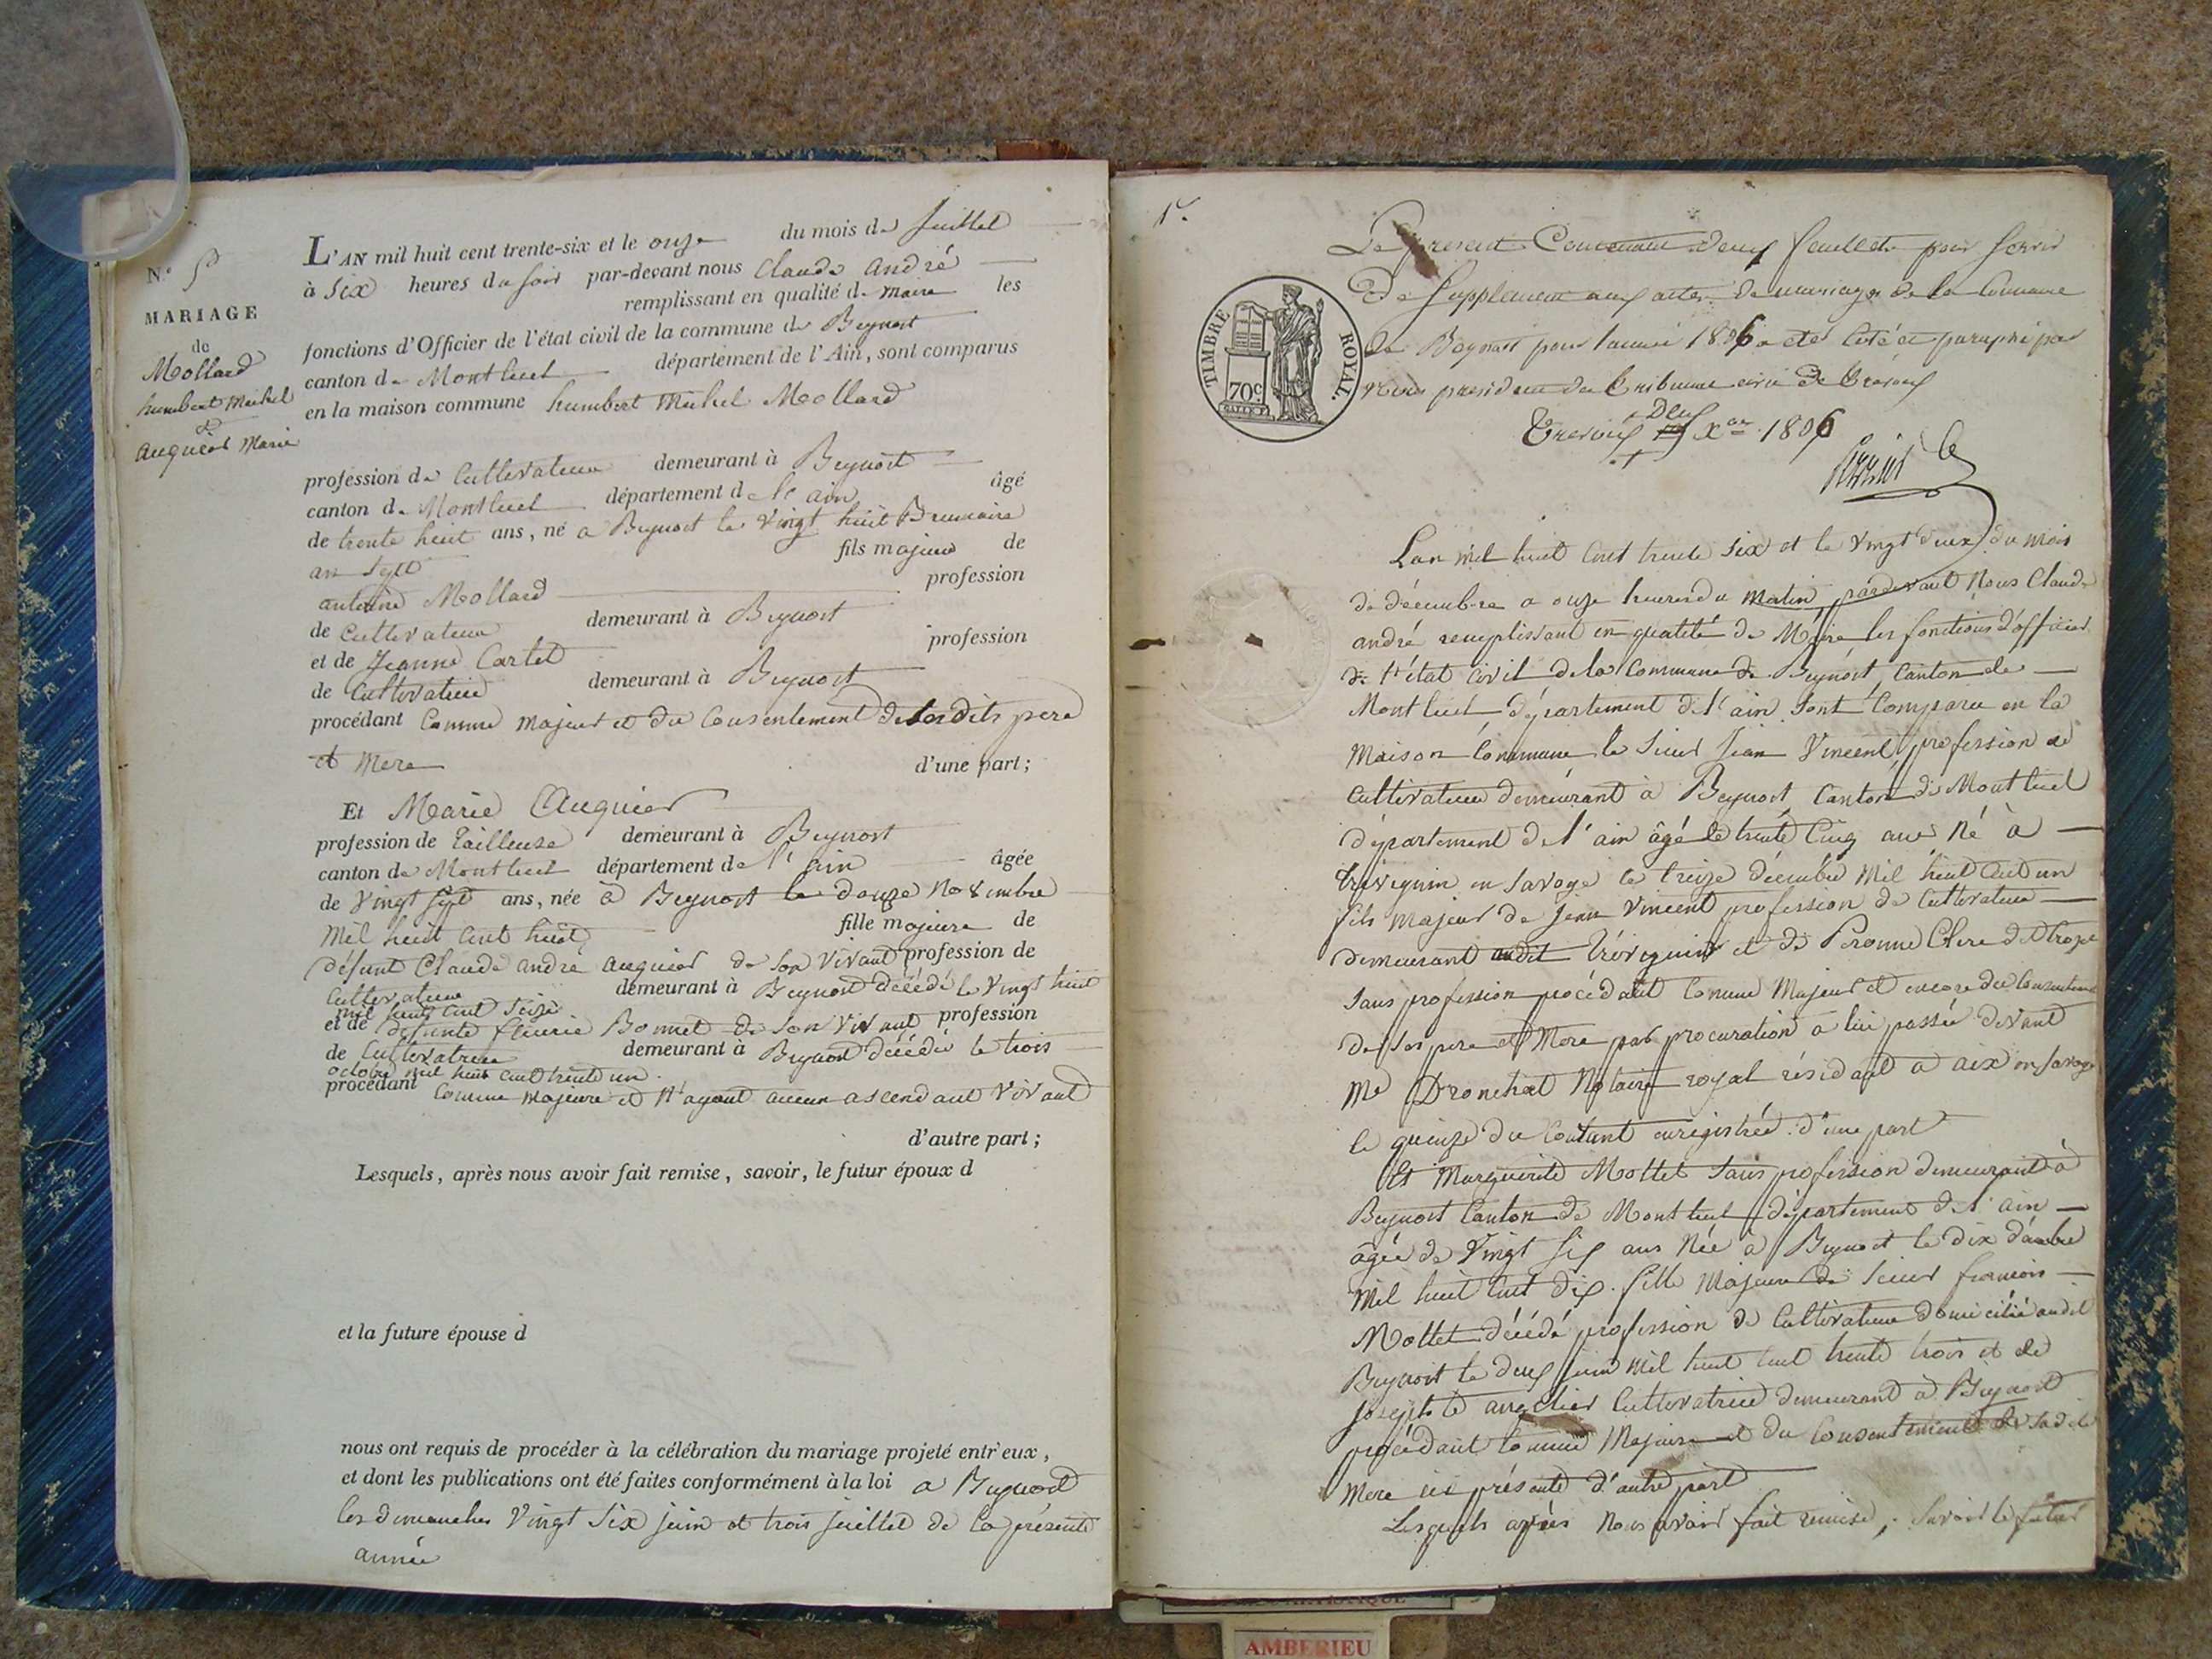 N.º 5
MARIAGE
de
Mollard
humbert Michel
&
auquier Marie
L'AN mil huit cent trente-six et le onze du mois de juillet
à six heures du soir par-devant nous Claude andré
remplissant en qualité de maire les
fonctions d'Officier de l'état civil de la commune de Beynost
canton de Montluel département de l'Ain, sont comparus
en la maison commune humbert Michel Mollard
profession de Cultivateur demeurant à Beynost
canton de Montluel département de l'ain âgé
de trente huit ans, né a Beynost le vingt huit Brumaire
an Sept fils majeur de
antoine Mollard profession
de Cultivateur demeurant à Beynost
et de Jeanne Cartet profession
de Cultivatrice demeurant à Beynost
procédant Comme majeur et du Consentement de ses dits pere
et Mere d'une part;
Et Marie Auquier
profession de Tailleuse demeurant à Beynost
canton de Montluel département de l'ain âgée
de Vingt sept ans, née à Beynost le douze Novembre
Mil huit cent huit fille majeure de
défunt Claude andré auquier de son Vivant profession de
Cultivateur demeurant à Beynost décédé le Vingt huit
mil huit cent seize
et de défunte fleurie Bonnet de son vivant profession
de Cultivatrice demeurant à Beynost décédée le trois
octobre mil huit cent trente un.
procédant Comme majeure et N'ayant aucun ascendant Vivant
d'autre part;
Lesquels, après nous avoir fait remise, savoir, le futur époux d
et la future épouse d
nous ont requis de procéder à la célébration du mariage projeté entr'eux,
et dont les publications ont été faites conformément à la loi a Beynost
les dimanches Vingt Six juin et trois juillet de la présente
année
Le present Contenant deux feuillets pour servir
De Supplement aux actes de mariage de la Commune
de Beynost pour l'année 1836 a eté Coté et paraphé par
Nous president du tribunal civil de Trevoux
Trevoux Deux Xbre 1836
TIMBRE ROYAL
70c
L'an mil huit cent trente six et le vingt deux du mois
de décembre a onze heures du matin pardevant Nous Claude
andré remplissant en qualité de Maire les fonctions d'officier
de l'état civil de la Commune de Beynost Canton de
Montluel département de l'ain Sont Comparu en la
Maison Commune le Sieur Jean Vincent, profession de
Cultivateur demeurant à Beynost Canton de Montluel
département de l'ain âgé de trente Cinq ans Né à
tréviguin en Savoye le treize décembre Mil huit cent un
fils majeur de Jean Vincent profession de Cultivateur
demeurant audit tréviguin et de Peronne Clerc
Sans profession procédant Comme Majeur et encore du Consentement
de ses pere et Mere par procuration a lui passée devant
Me Dronchat Notaire royal résidant a aix en Savoye
le quinze du Courant enregistrée. d'une part
Et Marguerite Mottet Sans profession demeurant à
Beynost Canton de Montluel département de l'ain
âgée de Vingt Six ans Née à Beynost le dix décembre
Mil huit cent dix. fille Majeure de Sieur françois
Mottet décédé profession de Cultivateur domicilié audit
Beynost le deux juin mil huit cent trente trois et de
Josephte Cultivatrice demeurant a Beynost
procédant Comme Majeure et du Consentement de sadite
Mere ici présente d'autre part
Lesquels après Nous avoir fait remise, Savoir le futur
AMBERIEU